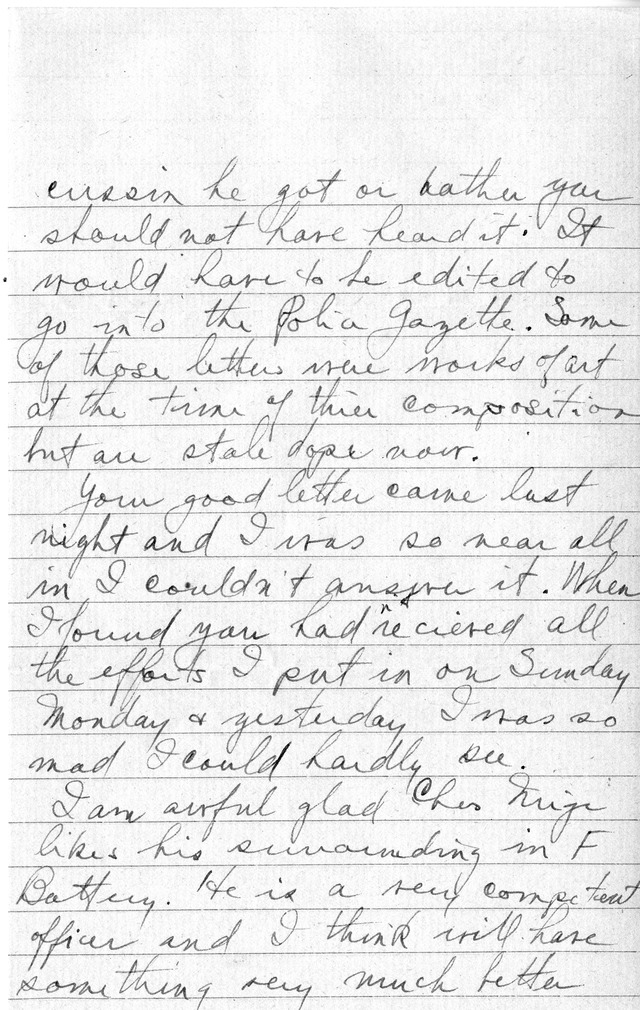 cussin he got or rather you
should not have heard it. It
would have to be edited to
go into the Police Gazette. Some
of those letters were works of art
at the time of thier composition
but are stale dope now.
Your good letter came last
night and I was so near all
in I couldn't answer it. When
I found you had n't recieved all
the efforts I put in on Sunday
Monday & yesterday I was so
mad I could hardly see.
I am awful glad Ches
likes his surrounding in F
Battery. He is a very competent
officer and I think will have
something very much better